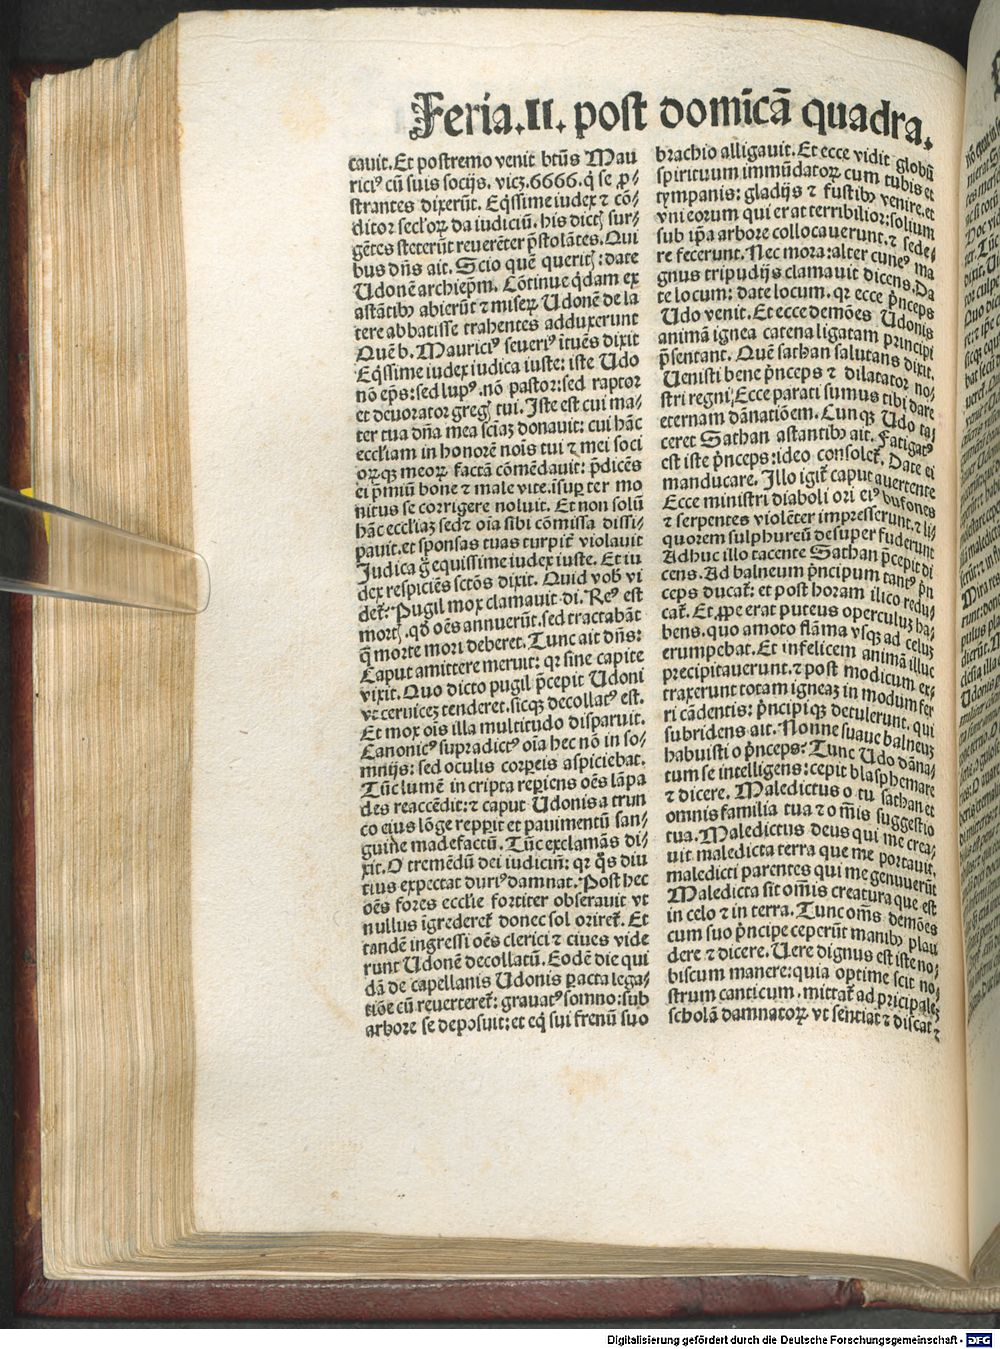 Feria.II. post domīcā quadra.
cauit. Et postremo venit btūs Mau
riciꝰ cū suis socijs. vicꝫ.6666. q̇ se ꝓ-
strantes dixerūt. Eq̇ssime iudex ⁊ cō-
ditor secl'oꝝ da iudiciū. his dictꝭ sur-
gētes steterūt reuerēter p̄stolātes. Qui
bus dn̄s ait. Scio quē queritꝭ: date
Udonē archiep̄m. Cōtinue q̇dam ex
astātibꝰ abierūt ⁊ miseꝝ Udonē de la
tere abbatisse trahentes adduxerunt
Quē b. Mauriciꝰ seueriꝰ ītuēs dixit
Eq̇ssime iudex iudica iuste: iste Udo
nō ep̄s: sed lupꝰ. nō pastor: sed raptor
et deuorator gregꝭ tui. Iste est cui ma-
ter tua dn̄a mea sciaꝫ donauit: cui hāc
eccl'iam in honorē noīs tui ⁊ mei soci
oꝝqꝫ meoꝝ factā cōmēdauit: p̄dicēs
ei p̄miū bone ⁊ male vite. īsuꝑ ter mo
nitus se corrigere noluit. Et non solū
hāc eccl'iaꝫ sedꝫ oīa sibi cōmissa dissi-
pauit. et sponsas tuas turpit᷑ violauit
Iudica g̊ equissime iudex iuste. Et iu
dex respiciēs sctōs dixit. Quid vob̄ vi
det᷑: Pugil mox clamauit di. Reꝰ est
mortꝭ. qd̄ oēs annuerūt. sed tractabāt
q̄ morte mori deberet. Tunc ait dn̄s:
Caput amittere meruit: qꝛ sine capite
vixit. Quo dicto pugil p̄cepit Udoni
vt ceruiceꝫ tenderet. sicqꝫ decollatꝰ est.
Et mox oīs illa multitudo disparuit.
Canonicꝰ supradictꝰ oīa hec nō in so-
mnijs: sed oculis corꝑeis aspiciebat.
Tūc lumē in cripta reꝑiens oēs lāpa
des reaccēdit: ⁊ caput Udonis a trun
co eius lōge repꝑit et pauimentū san-
guine madefactū. Tūc exclamās di-
xit. O tremēdū dei iudiciū: qꝛ q̊s diu
tius expectat duriꝰ damnat. Post hec
oēs fores eccl'ie fortiter obserauit vt
nullus īgrederet᷑ donec sol oriret᷑. Et
tandē ingressi oēs clerici ⁊ ciues vide
runt Udonē decollatū. Eodē die qui
dā de capellanis Udonis ꝑacta lega-
tiōe cū reuerteret᷑: grauatꝰ somno: sub
arbore se deposuit: et eq̇ sui frenū suo
brachio alligauit. Et ecce vidit globū
spirituum immūdatoꝝ cum tubis et
tympanis: gladijs ⁊ fustibꝰ venire. et
vni eorum qui erat terribilior: solium
sub ip̄a arbore collocauerunt. ⁊ sede-
re fecerunt. Nec mora: alter cuneꝰ ma
gnus tripudijs clamauit dicens. Da
te locum: date locum. qꝛ ecce p̄nceps
Udo venit. Et ecce demōes Udonis
animā ignea catena ligatam principi
p̄sentant. Quē sathan salutans dixit.
Uenisti bene p̄nceps ⁊ dilatator no-
stri regni: Ecce parati sumus tibi dare
eternam dānatiōem. Cunqꝫ Udo ta-
ceret Sathan astantibꝰ ait. Fatigatꝰ
est iste p̄nceps: ideo consolet᷑. Date ei
manducare. Illo igit᷑ caput auertente
Ecce ministri diaboli ori eiꝰ bufones
⁊ serpentes violēter impresserunt. ⁊ li-
quorem sulphureū desuper fuderunt
Adhuc illo tacente Sathan p̄cepit di
cens. Ad balneum p̄ncipum tantꝰ p̄n
ceps ducat᷑: et post horam ilico redu-
cat᷑. Et ꝓpe erat puteus operculuꝫ ha-
bens. quo amoto flāma vsqꝫ ad celuꝫ
erumpebat. Et infelicem animā illuc
precipitauerunt. ⁊ post modicum ex-
traxerunt totam igneaꝫ in modum fer
ri cādentis: p̄ncipiqꝫ detulerunt. qui
subridens ait. Nonne suaue balneuꝫ
habuisti o p̄nceps: Tunc Udo dāna-
tum se intelligens: cepit blasphemare
⁊ dicere. Maledictus o tu sathan et
omnis familia tua ⁊ om̄is suggestio
tua. Maledictus deus qui me crea-
uit maledicta terra que me portauit.
maledicti parentes qui me genuuerūt
Maledicta sit om̄is creatura que est
in celo ⁊ in terra. Tunc om̄s demōes
cum suo p̄ncipe ceperūt manibꝰ plau
dere ⁊ dicere. Uere dignus est iste no-
biscum manere: quia optime scit no-
strum canticum. mittat᷑ ad pricipaleꝫ
scholā damnatoꝝ vt sentiat ⁊ discat ⁊
Digitalisierung gefördert durch die Deutsche Forschungsgemeinschaft - DFG